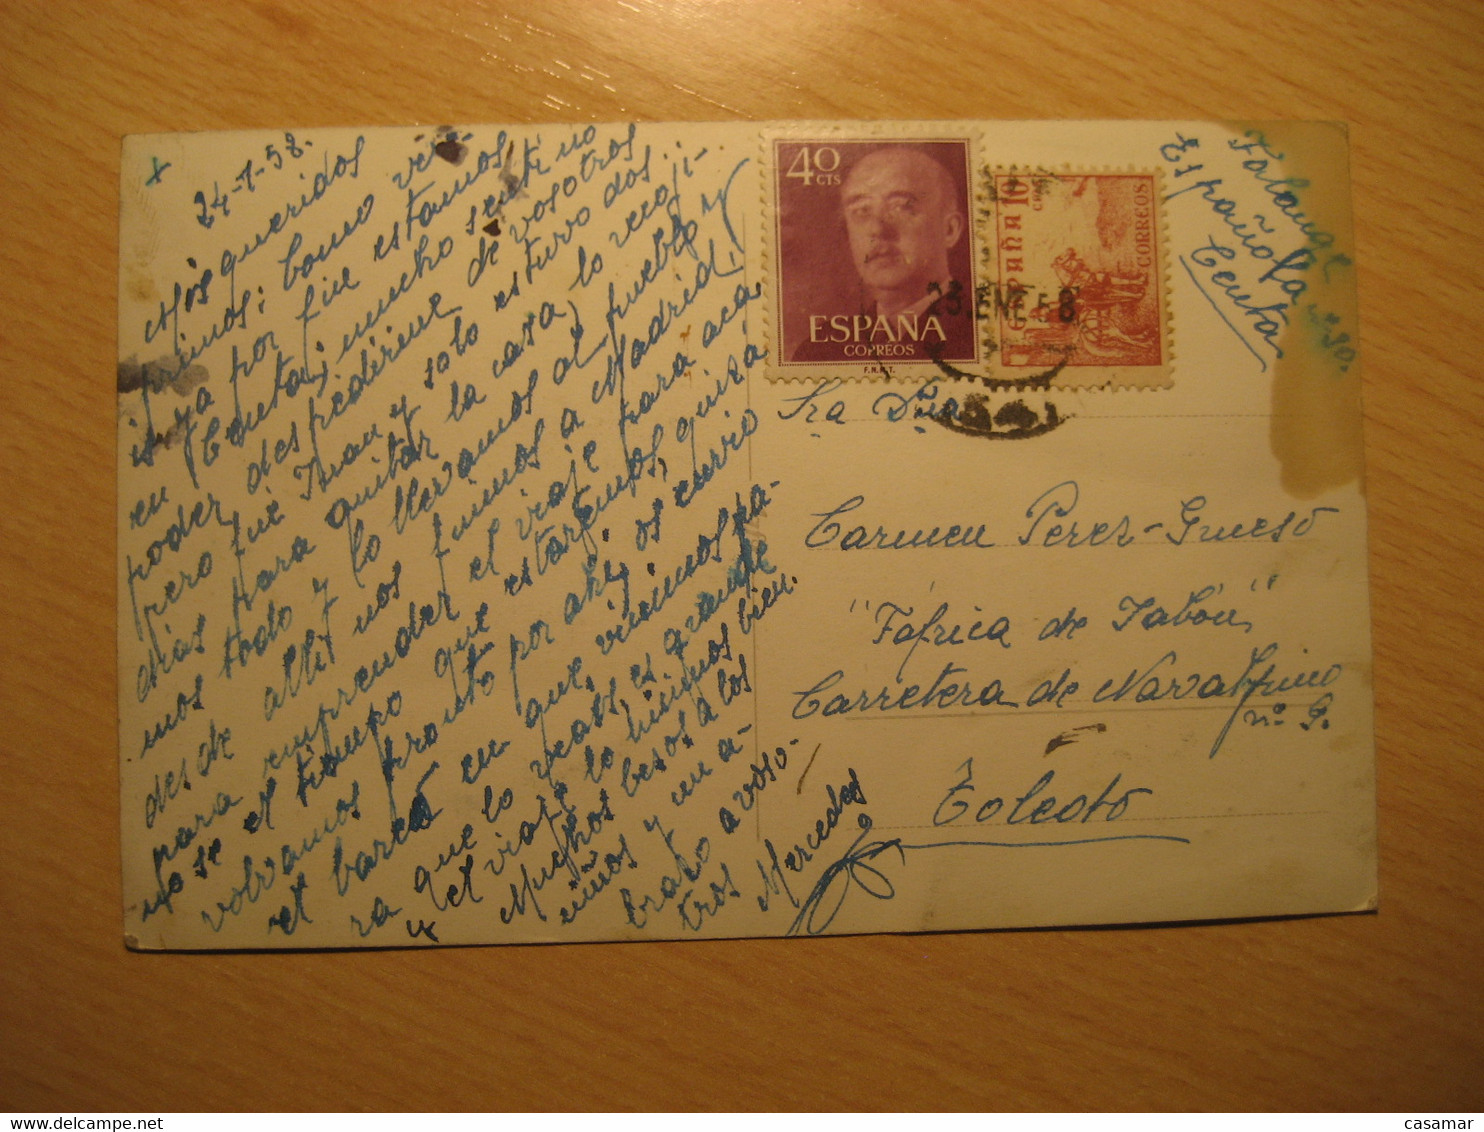 24-1-58.
Mis queridos
primos: Como vé-
is ya por fin estamos
en Ceuta; mucho sentí no
poder despedirme de vosotros
pero fué Juan y solo estuvo dos
días para quitar la casa, lo recoji-
mos todo y lo llevamos al pueblo y
desde allí nos fuimos a Madrid,
para emprender el viaje para acá
no se el tiempo que estaremos, quizá
volvamos pronto por ahí, os envio
el barco en que vinimos pa-
ra que lo veais, es grande
y el viaje lo hicimos bien.
Muchos besos a los
niños y un a-
brazo a voso-
tros
Mercedes
40
CTS
ESPAÑA
CORREOS
F.N.M.T.
ESPAÑA 10
CTS
CORREOS
23.ENE.58
Falange
Española nº 90.
Ceuta
Sra Dña
Carmen Perez-Grueso
"Fáfrica de Jabón"
Carretera de Navalpino
nº 9.
Toledo
casamar